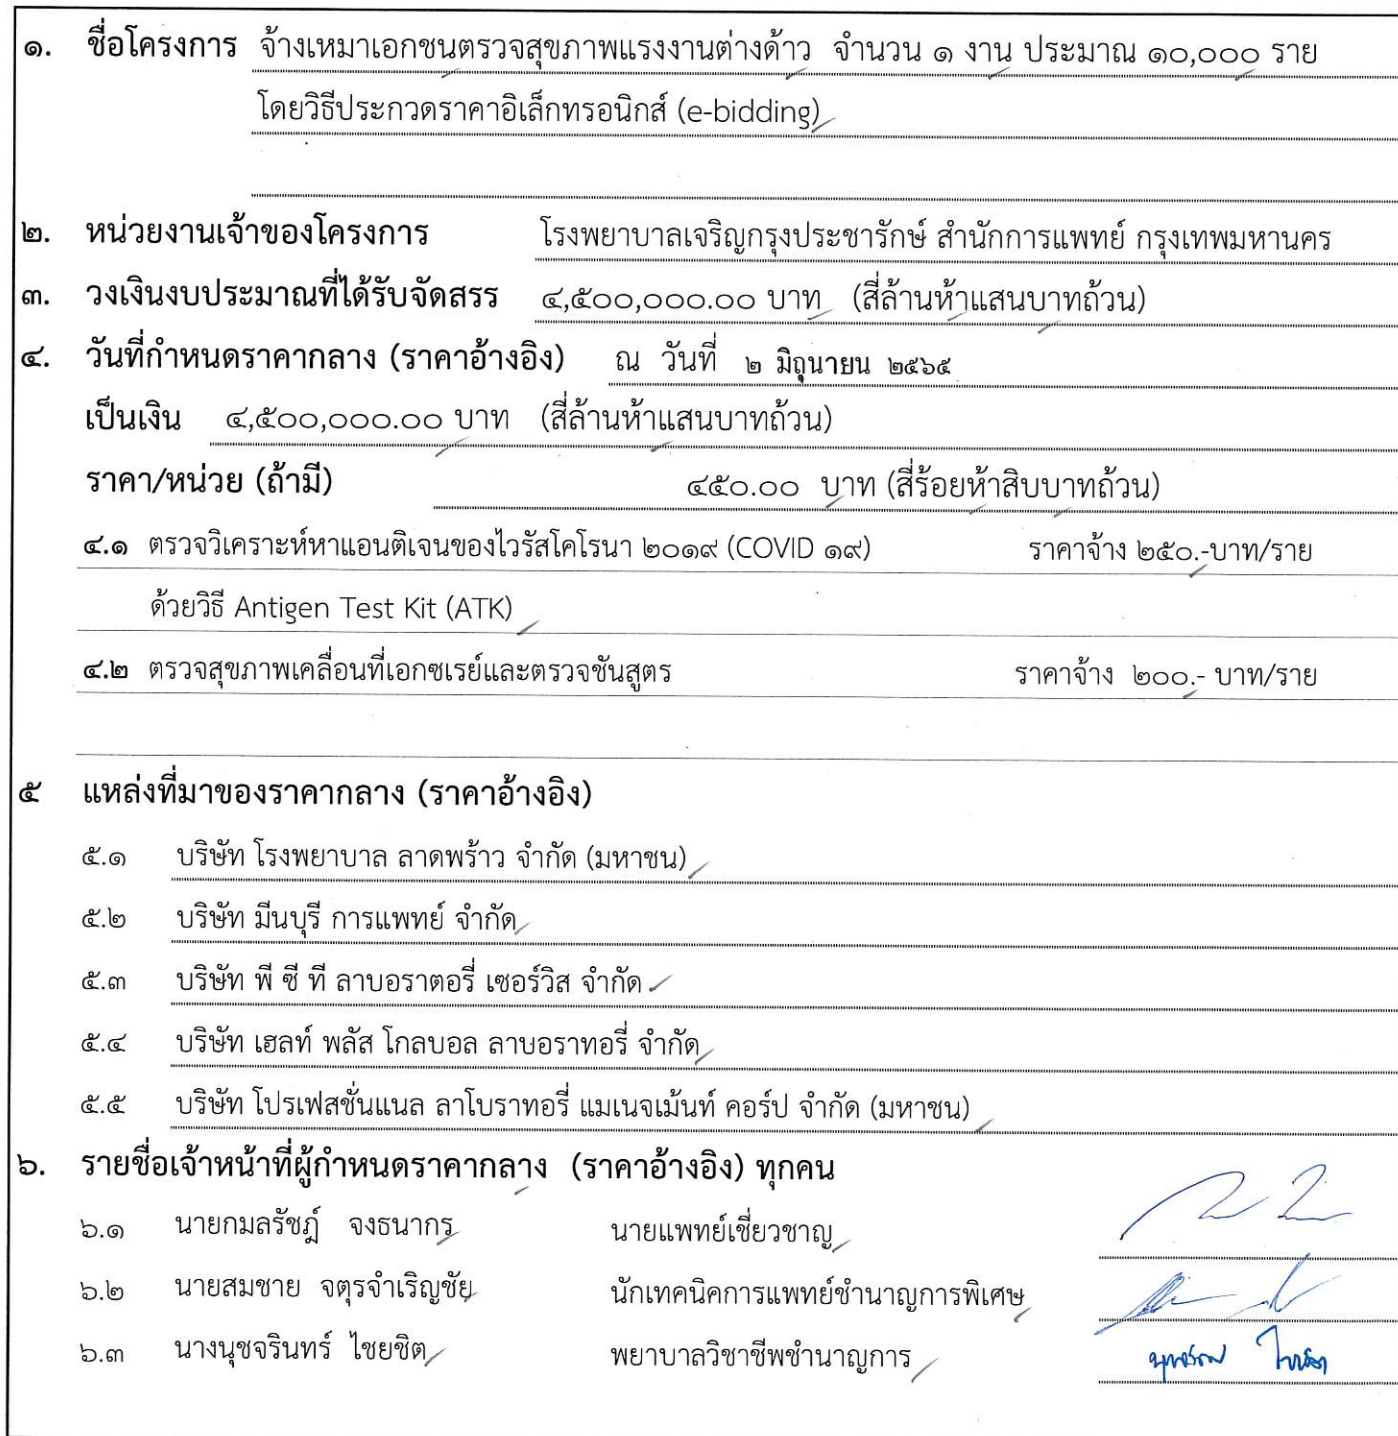 ๑. ชื่อโครงการ จ้างเหมาเอกชนตรวจสุขภาพแรงงานต่างด้าว จำนวน ๑ งาน ประมาณ ๑๐,๐๐๐ ราย
โดยวิธีประกวดราคาอิเล็กทรอนิกส์ (e-bidding)
๒. หน่วยงานเจ้าของโครงการ โรงพยาบาลเจริญกรุงประชารักษ์ สำนักการแพทย์ กรุงเทพมหานคร
๓. วงเงินงบประมาณที่ได้รับจัดสรร ๔,๕๐๐,๐๐๐.๐๐ บาท (สี่ล้านห้าแสนบาทถ้วน)
๔. วันที่กำหนดราคากลาง (ราคาอ้างอิง) ณ วันที่ ๒ มิถุนายน ๒๕๖๕
เป็นเงิน ๔,๕๐๐,๐๐๐.๐๐ บาท (สี่ล้านห้าแสนบาทถ้วน)
ราคา/หน่วย (ถ้ามี) ๔๕๐.๐๐ บาท (สี่ร้อยห้าสิบบาทถ้วน)
๔.๑ ตรวจวิเคราะห์หาแอนติเจนของไวรัสโคโรนา ๒๐๑๙ (COVID ๑๙) ราคาจ้าง ๒๕๐.-บาท/ราย
ด้วยวิธี Antigen Test Kit (ATK)
๔.๒ ตรวจสุขภาพเคลื่อนที่เอกซเรย์และตรวจชันสูตร ราคาจ้าง ๒๐๐.- บาท/ราย
๕ แหล่งที่มาของราคากลาง (ราคาอ้างอิง)
๕.๑ บริษัท โรงพยาบาล ลาดพร้าว จำกัด (มหาชน)
๕.๒ บริษัท มีนบุรี การแพทย์ จำกัด
๕.๓ บริษัท พี ซี ที ลาบอราตอรี่ เซอร์วิส จำกัด
๕.๔ บริษัท เฮลท์ พลัส โกลบอล ลาบอราทอรี่ จำกัด
๕.๕ บริษัท โปรเฟสชั่นแนล ลาโบราทอรี่ แมเนจเม้นท์ คอร์ป จำกัด (มหาชน)
๖. รายชื่อเจ้าหน้าที่ผู้กำหนดราคากลาง (ราคาอ้างอิง) ทุกคน
๖.๑ นายกมลรัชฎ์ จงธนากร นายแพทย์เชี่ยวชาญ
๖.๒ นายสมชาย จตุรจำเริญชัย นักเทคนิคการแพทย์ชำนาญการพิเศษ
๖.๓ นางนุชจรินทร์ ไชยชิต พยาบาลวิชาชีพชำนาญการ